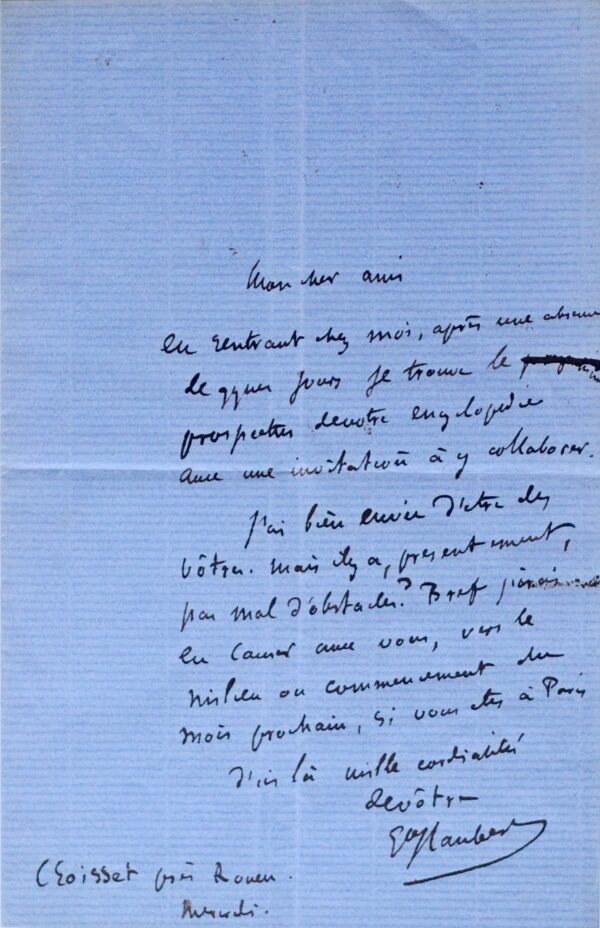 Mon cher ami
En rentrant chez moi, après une absence
de qques jours je trouve le
prospectus de votre encyclopédie
avec une invitation à y collaborer.
J'ai bien envie d'être des
vôtres. mais il y a, présentement,
pas mal d'obstacles? Bref j'irais
en causer avec vous, vers le
milieu ou commencement du
mois prochain, si vous etes à Paris
D'ici là mille cordialités
de vôtre
Gve Flaubert
Croisset près Rouen.